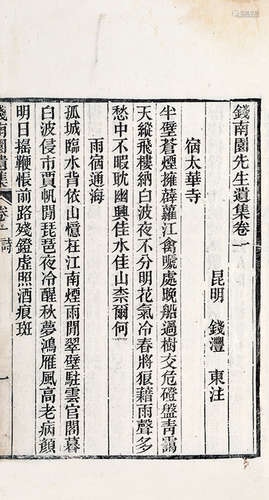 錢南園先生遺集卷一
昆明　錢灃　東注
宿太華寺
半壁蒼煙擁薜蘿江禽曬處晚船過樹交危磴盤青靄
天縱飛樓納白波夜不分明花氣冷春將狠藉雨聲多
愁中不暇耽幽興佳水佳山柰爾何
雨宿通海
孤城臨水背依山憶在江南煙雨閒翠壁駐雲官閣暮
白波侵市賈帆閒琵琶夜冷醒秋夢鴻雁風高老病顏
明日搖鞭悵前路殘鐙虛照酒痕斑
錢南園遺集
卷一
詩
一